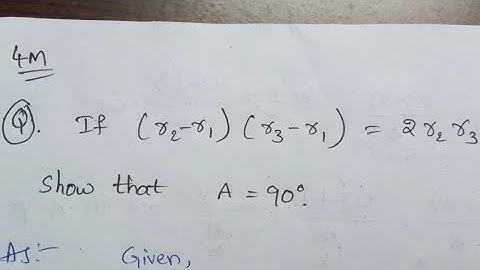 4M
Q. If (r₂-r₁) (r₃-r₁) = 2r₂r₃
show that A = 90°.
As:- Given,